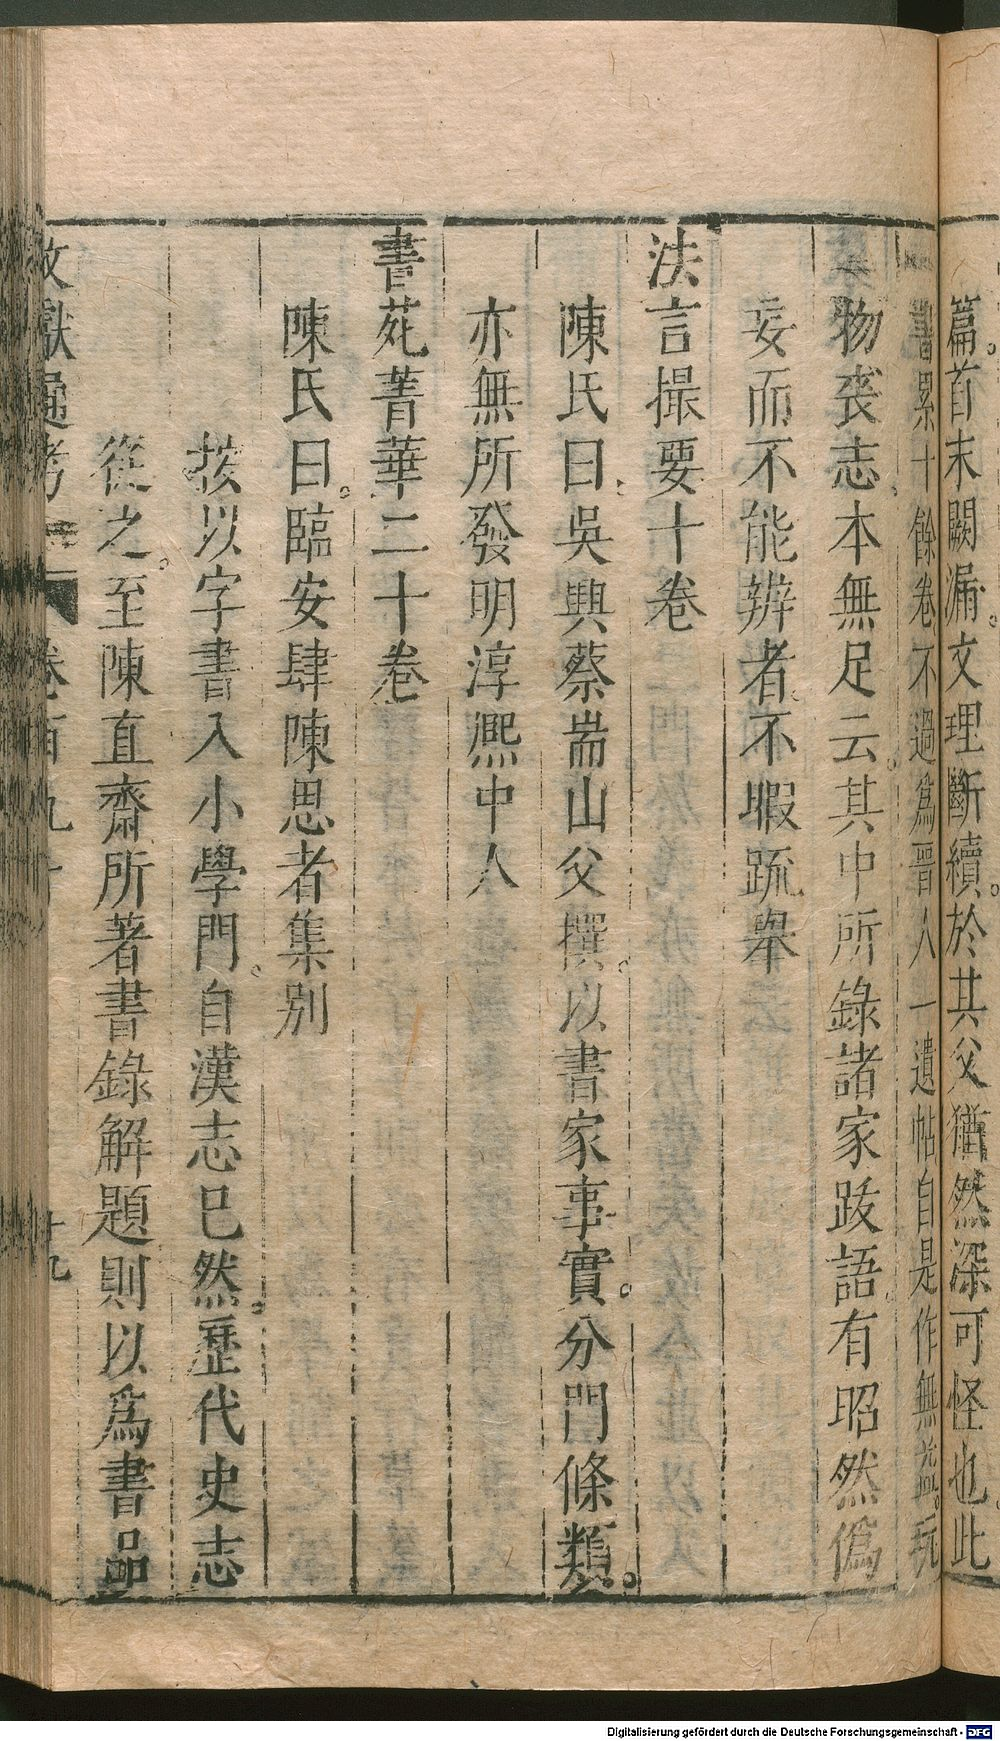 篇。首末闕漏。文理斷續。於其父猶然深可怪也。此
書累十餘卷、不過爲晉人一遺帖自是作無益。玩
物喪志、本無足云。其中所錄諸家跋語。有昭然僞
妄而不能辨者、不暇疏舉
法言撮要十卷
陳氏曰、吳興蔡耑山父撰。以書家事實。分門條類。
亦無所發明淳熙中人
書苑菁華二十卷
陳氏曰。臨安肆陳思者集別
按以字書入小學門。自漢志已然。歷代史志
從之。至陳直齋所著書錄解題則以爲書品
文獻通考 卷百九十 十九
Digitalisierung gefördert durch die Deutsche Forschungsgemeinschaft - DFG